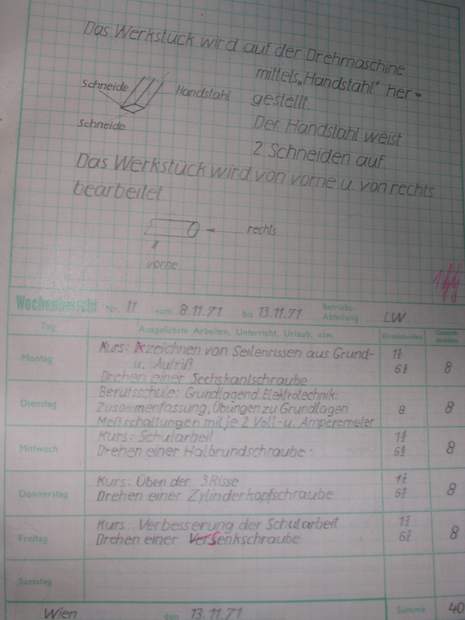 Das Werkstück wird auf der Drehmaschine
mittels „Handstahl" her-
gestellt.
Der Handstahl weist
2 Schneiden auf.
Schneide
Handstahl
Schneide
Das Werkstück wird von vorne u. von rechts
bearbeitet
rechts
vorne
Wochenbericht Nr. 11 vom 8.11.71 bis 13.11.71 Betriebs-Abteilung LW
Tag Ausgeführte Arbeiten, Unterricht, Urlaub, usw.
Montag Kurs: Azeichnen von Seitenrissen aus Grund-
u. Aufriß
Drehen einer Sechskantschraube 8
Dienstag Berufsschule: Grundlagend. Elektrotechnik:
Zusammenfassung, Übungen zu Grundlagen 8 8
Meßschaltungen mit je 2 Voll- u. Amperemeter
Mittwoch Kurs: Schularbeit
Drehen einer Halbrundschraube: 8
Donnerstag Kurs: Üben der 3 Risse
Drehen einer Zylinderkopfschraube 8
Freitag Kurs: Verbesserung der Schularbeit
Drehen einer Versenkschraube 8
Samstag
Wien den 13.11.71 Summe 40